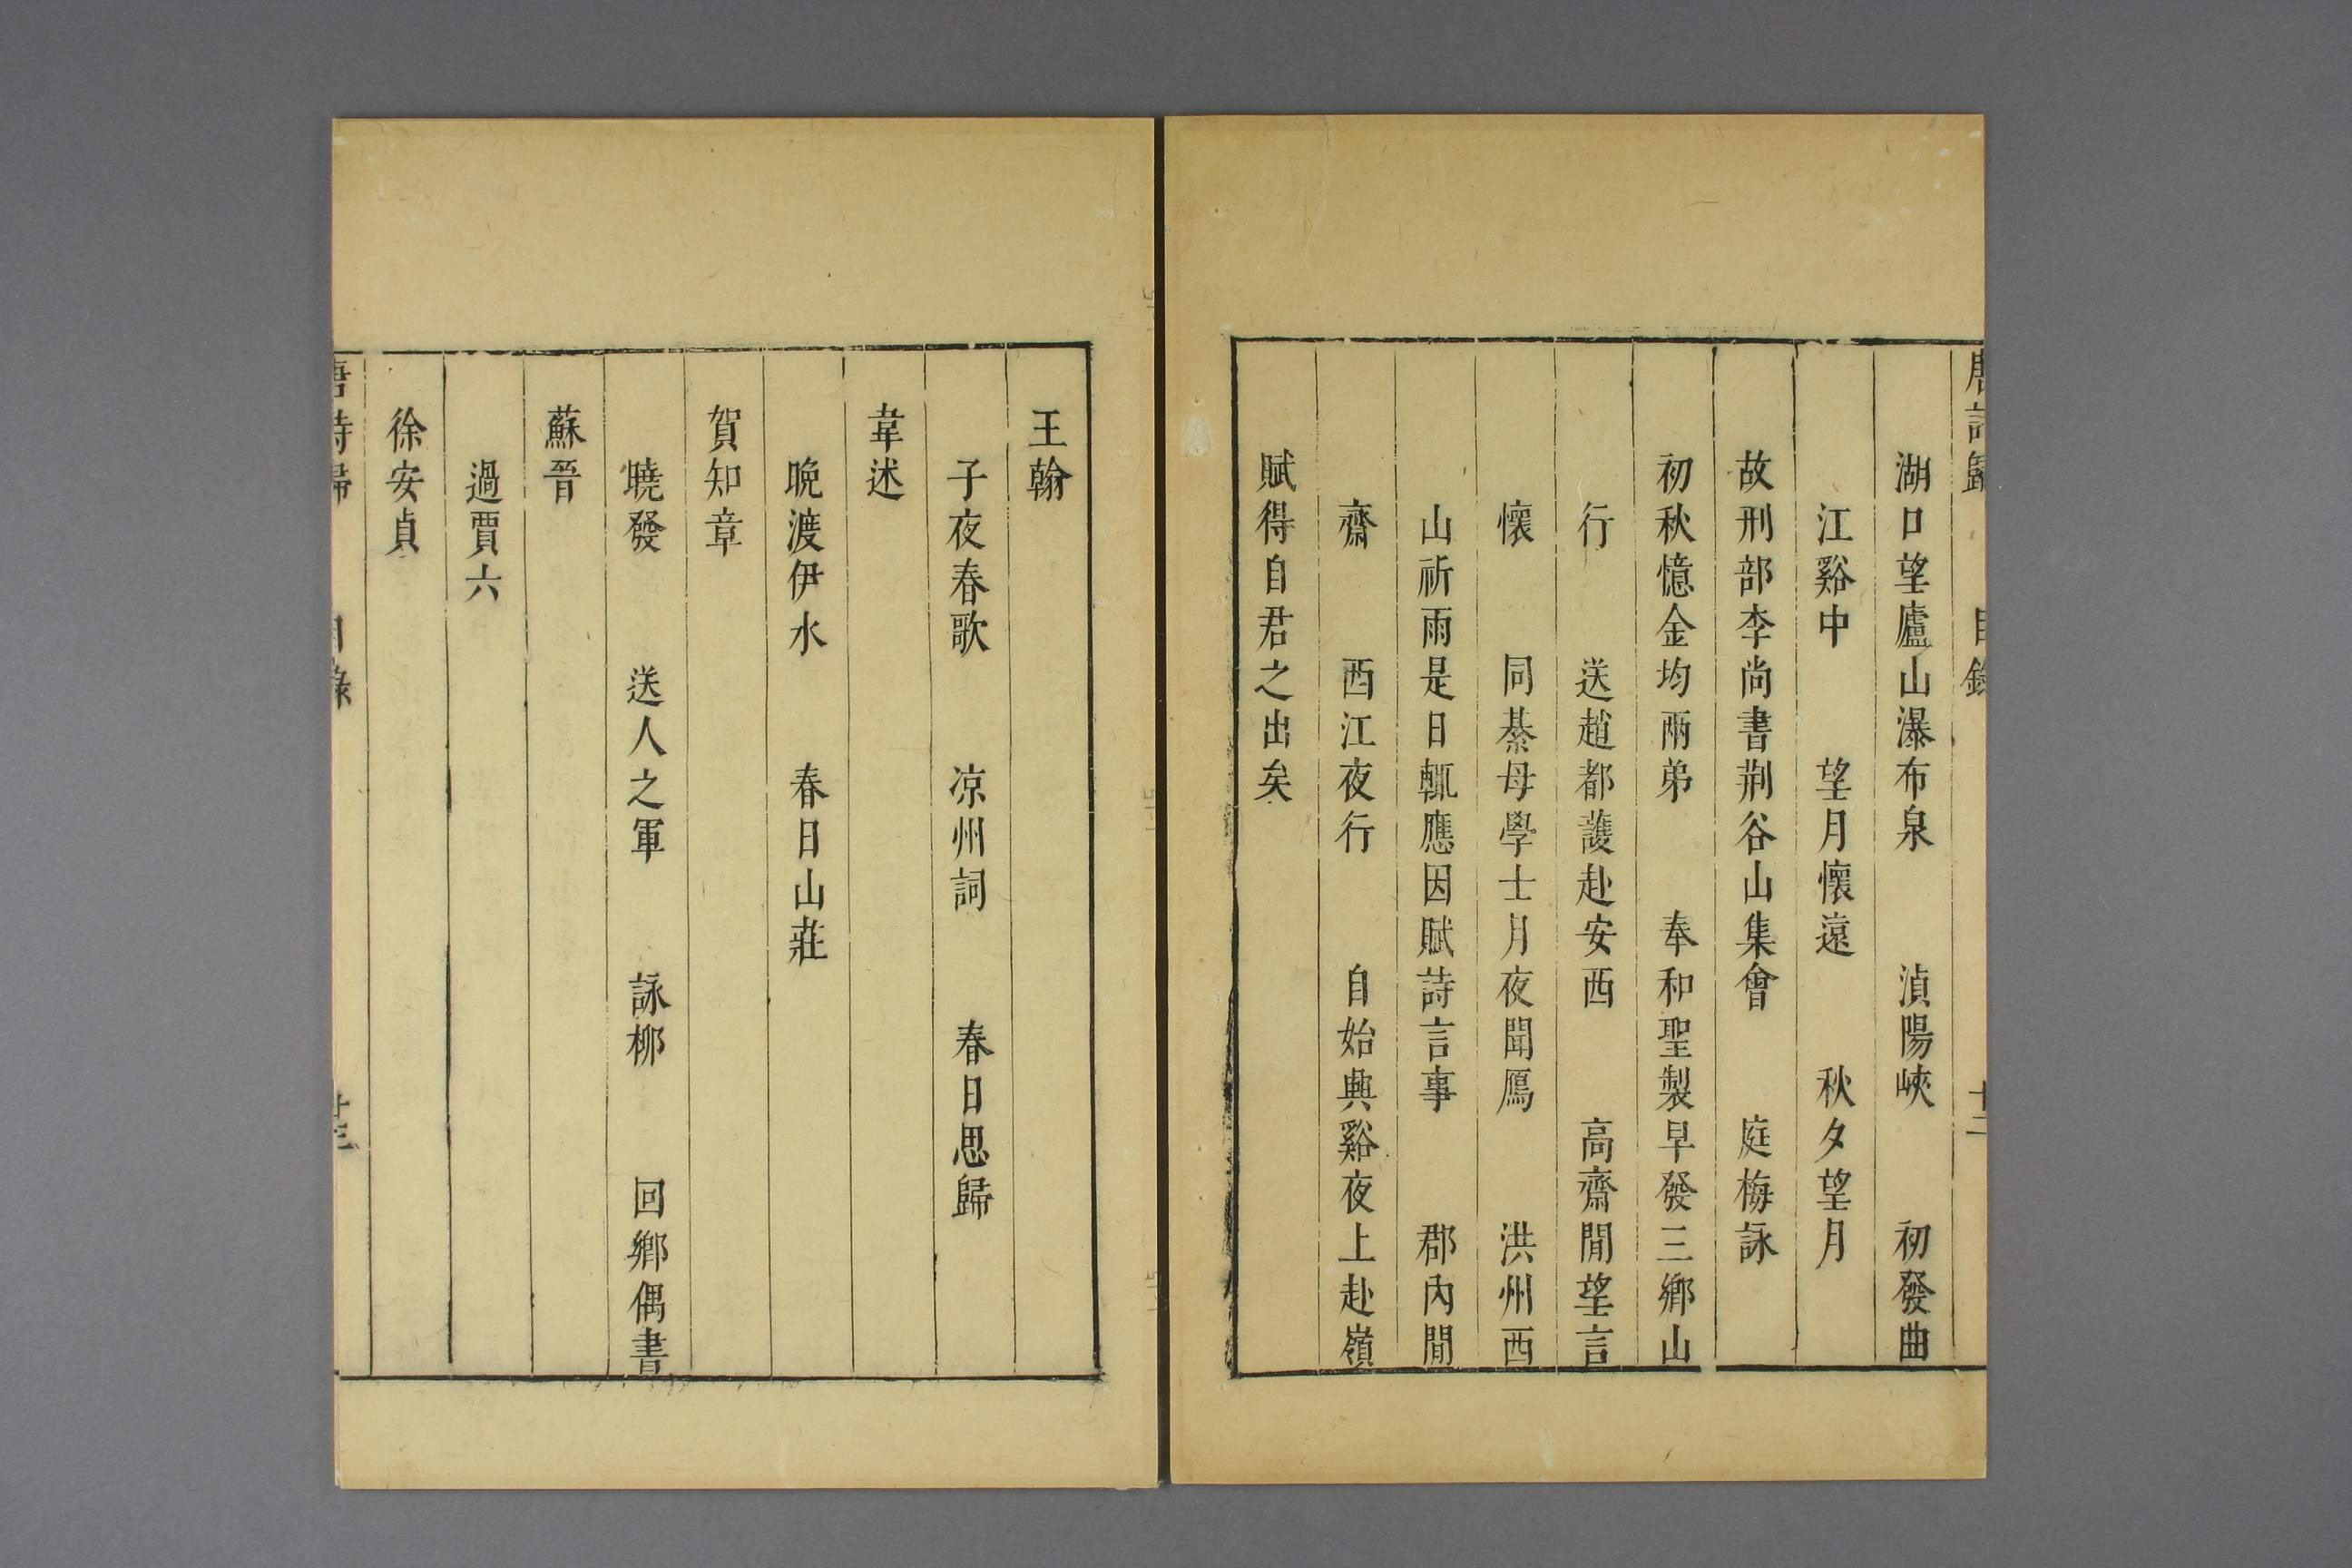 唐詩歸 目錄 十二
湖口望廬山瀑布泉 湞陽峽 初發曲
江谿中 望月懷遠 秋夕望月
故刑部李尚書荆谷山集會 庭梅詠
初秋憶金均兩弟 奉和聖製早發三鄉山
行 送趙都護赴安西 高齋閒望言
懷 同綦母學士月夜聞鴈 洪州西
山祈雨是日輒應因賦詩言事 郡內閒
齋 西江夜行 自始興谿夜上赴嶺
賦得自君之出矣
王翰
子夜春歌 凉州詞 春日思歸
韋述
晩渡伊水 春日山莊
賀知章
曉發 送人之軍 詠柳 回鄉偶書
蘇晉
過賈六
徐安貞
唐詩歸 目錄